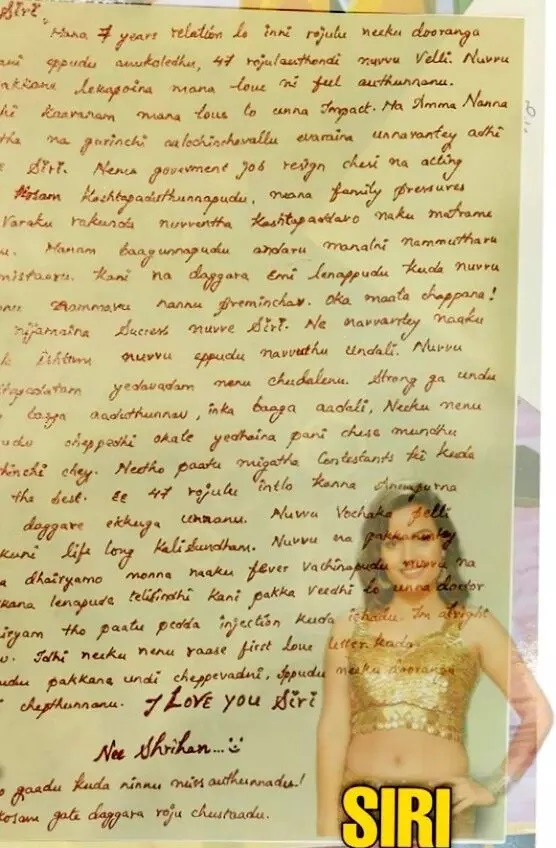 Siri
Mana 7 years relation lo inni rojulu neeku dooranga
eppudu anukoledhu, 47 rojulauthondi nuvvu Velli. Nuvvu
lekapoina mana love ni feel authunnanu.
Kaaranam mana love lo unna Impact. Na Amma Nanna
na gurinchi aalochinchevallu evaraina unnarantey adhi
Siri. Nenu goverment job resign chesi na acting
Kosam Kashtapadisthunnapudu, mana family pressures
Varaku rakunda nuvventha Kashtapaddavo naku matrame
Manam baagunnapudu andaru manalni nammutharu
Kani na daggara Emi lenappudu Kuda nuvvu
nammavu nannu preminchav. Oka maata cheppana!
nijamaina Success nuvve Siri. Ne navvantey naaku
ishtam nuvvu eppudu navvuthu Undali. Nuvvu
yedavadam nenu chudalenu. Strong ga undu
aaduthunnav, inka baaga aadali, Neeku nenu
cheppedhi okate yedhaina pani chese mundhu
chey. Neetho paatu migatha Contestants ki Kuda
the best. Ee 47 rojulu intlo Kanna Annapurna
daggare ekkuva unnanu. Nuvvu Vochaka pelli
life long Kalisundham. Nuvvu na pakkanuntey
dhairyamo monna naaku fever vachinapudu nuvvu na
lenapude telisindhi Kani pakka Veedhi lo unna doctor
tho paatu pedda injection Kuda ichadu. Im alright
Idhi neeku nenu raase first love letter Kuda.
pakkana undi cheppevadni, Ippudu neeku dooranga
chepthunnanu. I LOVE YOU Siri
Nee Shrihan...
gaadu kuda ninnu miss authunnadu!
gate daggara roju chustaadu.
SIRI